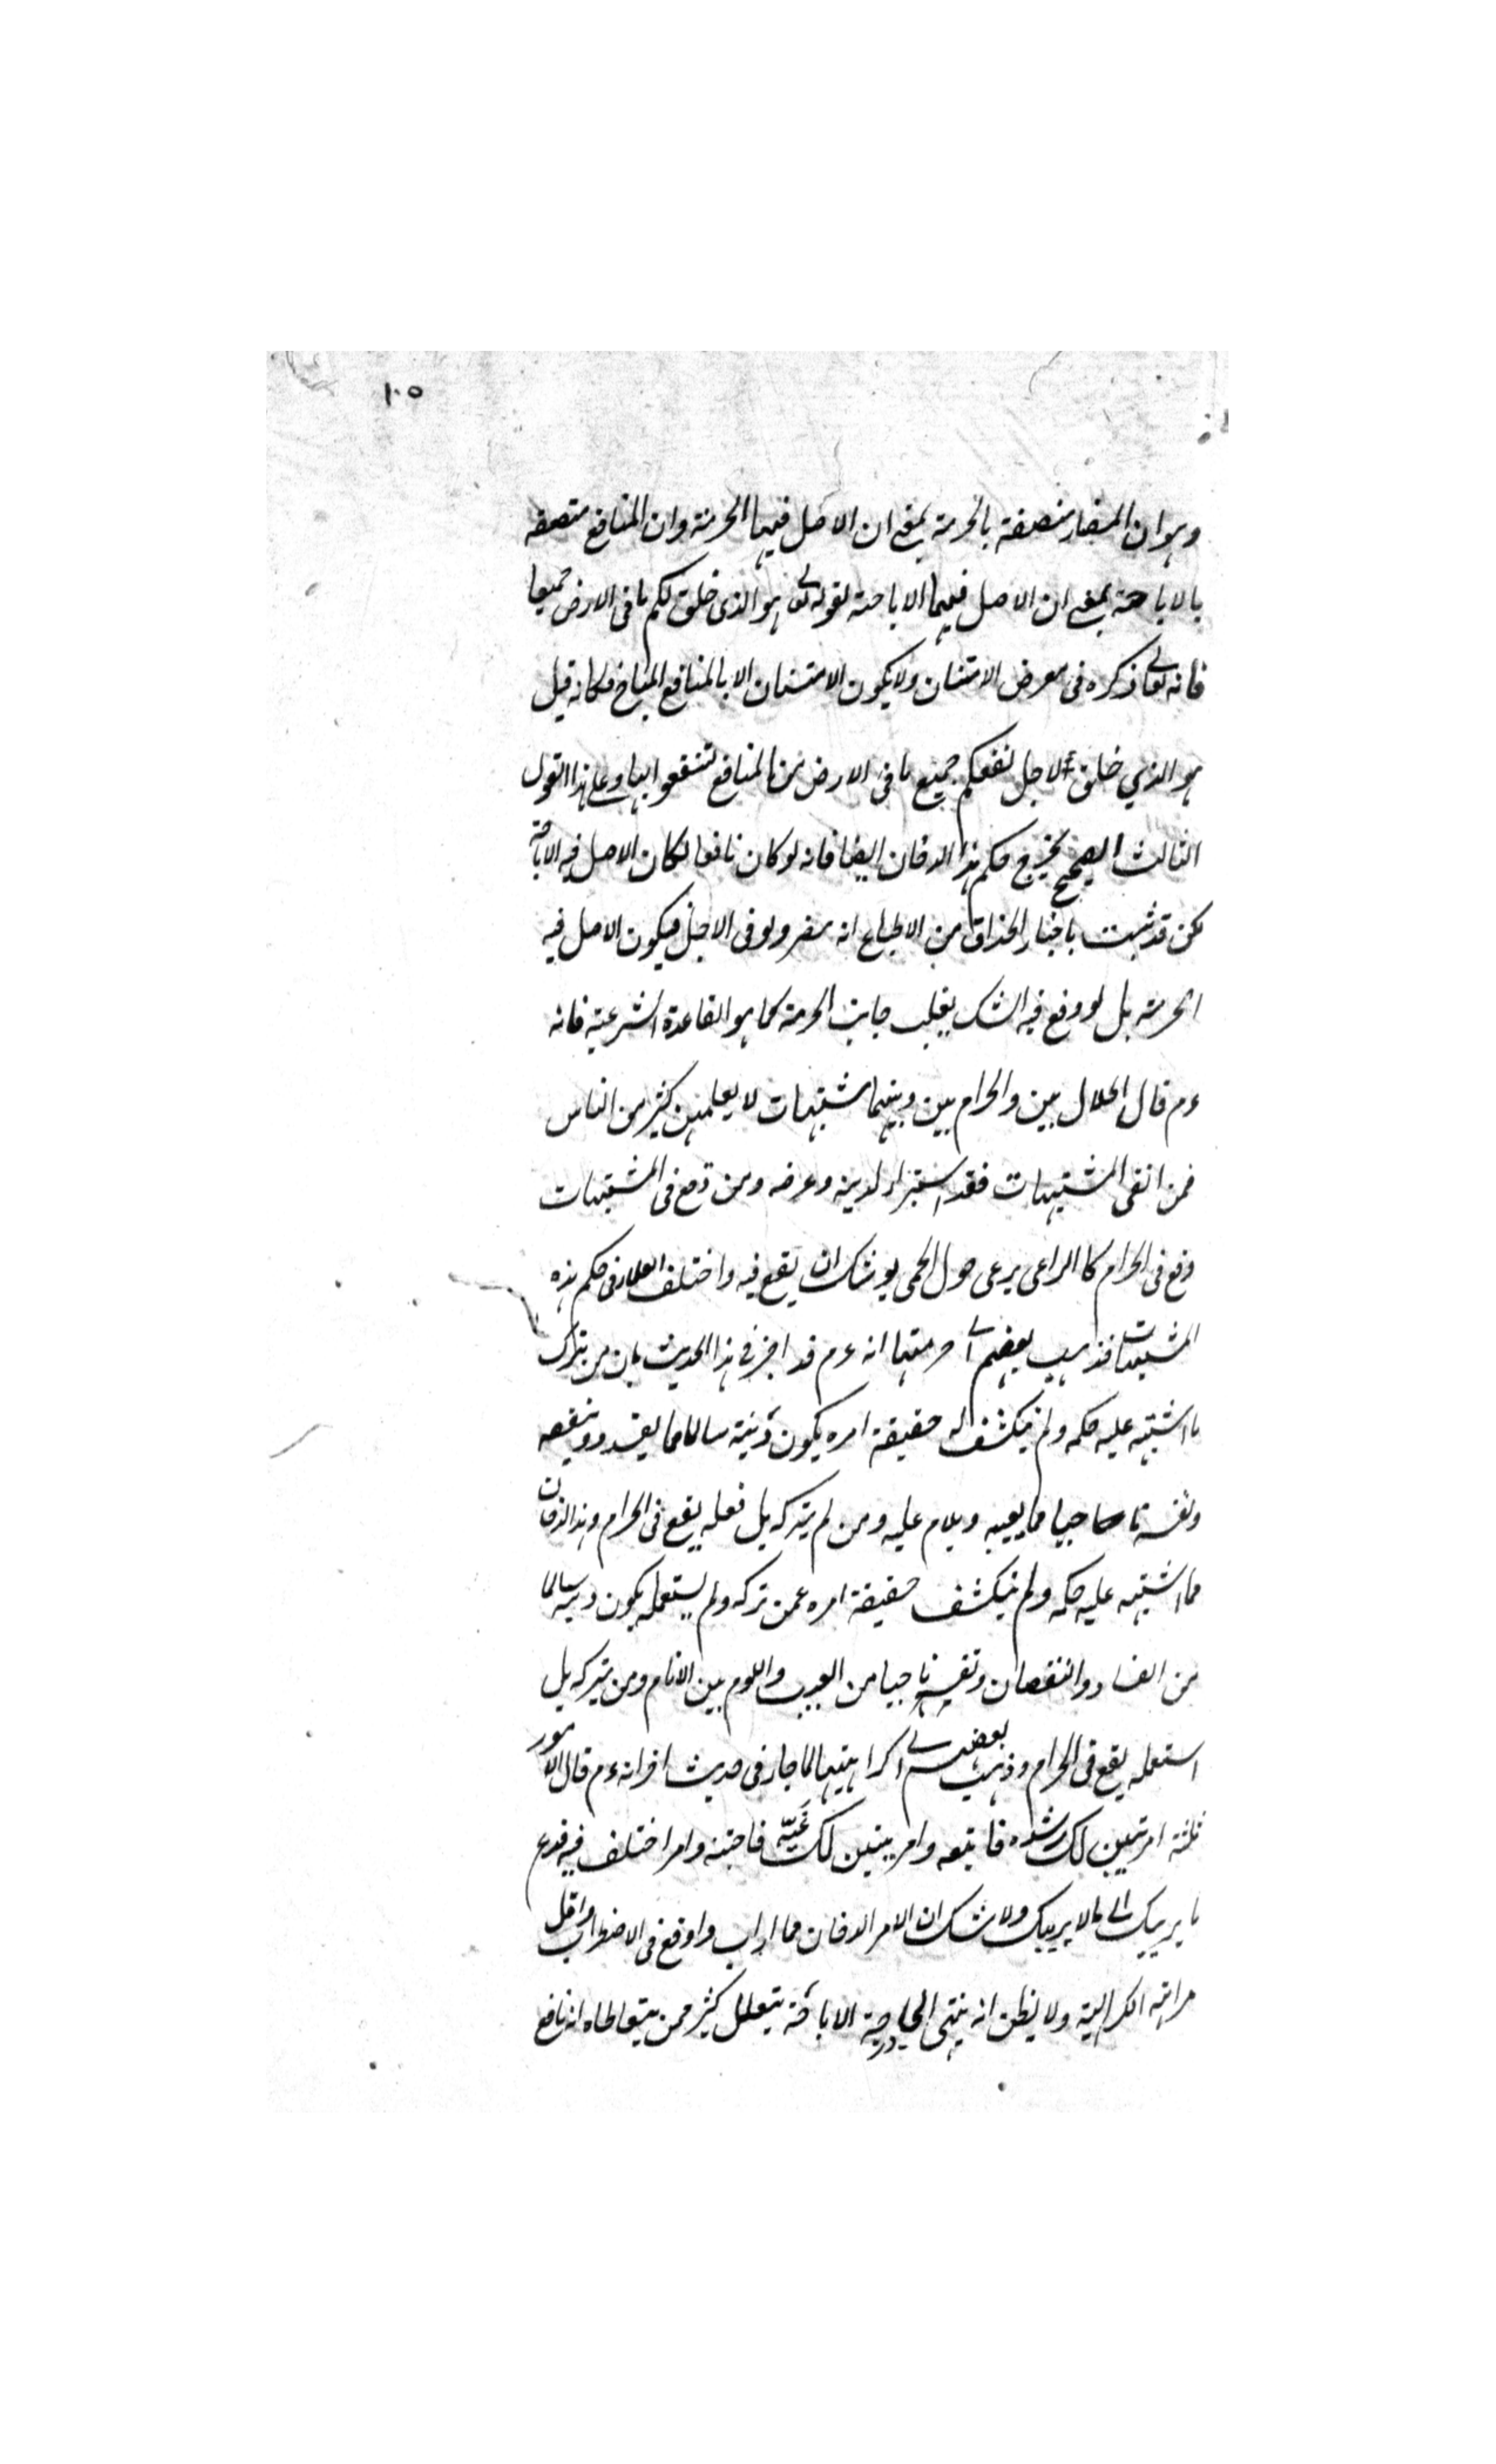 ١٠٥
وهو ان المضار متصفة بالحرمة بمعنى ان الاصل فيها الحرمة وان المنافع متصفة
بالاباحة بمعنى ان الاصل فيها الاباحة لقوله تعالى هو الذى خلق لكم ما فى الارض جميعا
فانه تعالى ذكره فى معرض الامتنان ولا يكون الامتنان الا بالمنافع المباح فكانه قيل
هو الذي خلق لاجل نفعكم جميع ما فى الارض من المنافع لتنتفعوا بها وعلى هذا القول
الثالث الصحيح يخرج حكم هذا الدخان ايضا فانه لو كان نافعا لكان الاصل فيه الاباحة
لكن قد ثبت باخبار الحذاق من الاطباء انه مضر ولو فى الاجل فيكون الاصل فيه
الحرمة بل لو وقع فيه الشك يغلب جانب الحرمة كما هو القاعدة الشرعية فانه
عم قال الحلال بين والحرام بين وبينهما مشتبهات لا يعلمهن كثير من الناس
فمن اتقى المشتبهات فقد استبراء لدينه وعرضه ومن وقع فى المشتبهات
وقع فى الحرام كالراعى يرعى حول الحمى يوشك ان يقع فيه واختلف العلماء فى حكم هذه
المشتبهات فذهب بعضهم الى حرمتها انه عم قد اخبر فى هذا الحديث بان من يترك
ما اشتبه عليه حكمه ولم ينكشف له حقيقة امره يكون دينه سالما مما يفسد وينقصه
ونفسه ناجيا مما يعيبه ويلام عليه ومن لم يتركه بل فعله يقع فى الحرام وهذا الدخان
مما اشتبه عليه حكمه ولم ينكشف حقيقة امره عمن تركه ولم يستعمله يكون دينه سالما
من الفساد والنقصان ونفسه ناجيا من العيب واللوم بين الانام ومن يتركه بل
استعمله يقع فى الحرام وذهب بعضهم الى كراهيتها لما جاء فى حديث اخر انه عم قال الامور
ثلثة امر تبين لك رشده فاتبعه وامر يتبين لك غيّه فاجتنبه وامر اختلف فيه فدع
ما يريبك الى مالا يريبك ولا شك ان الامر الدخان مما اراب واوقع فى الاضطراب واقل
مراتبه الكراهية ولا يظن انه ينتهى الى درجة الاباحة يتعلل كثير ممن يتعاطاه انه نافع